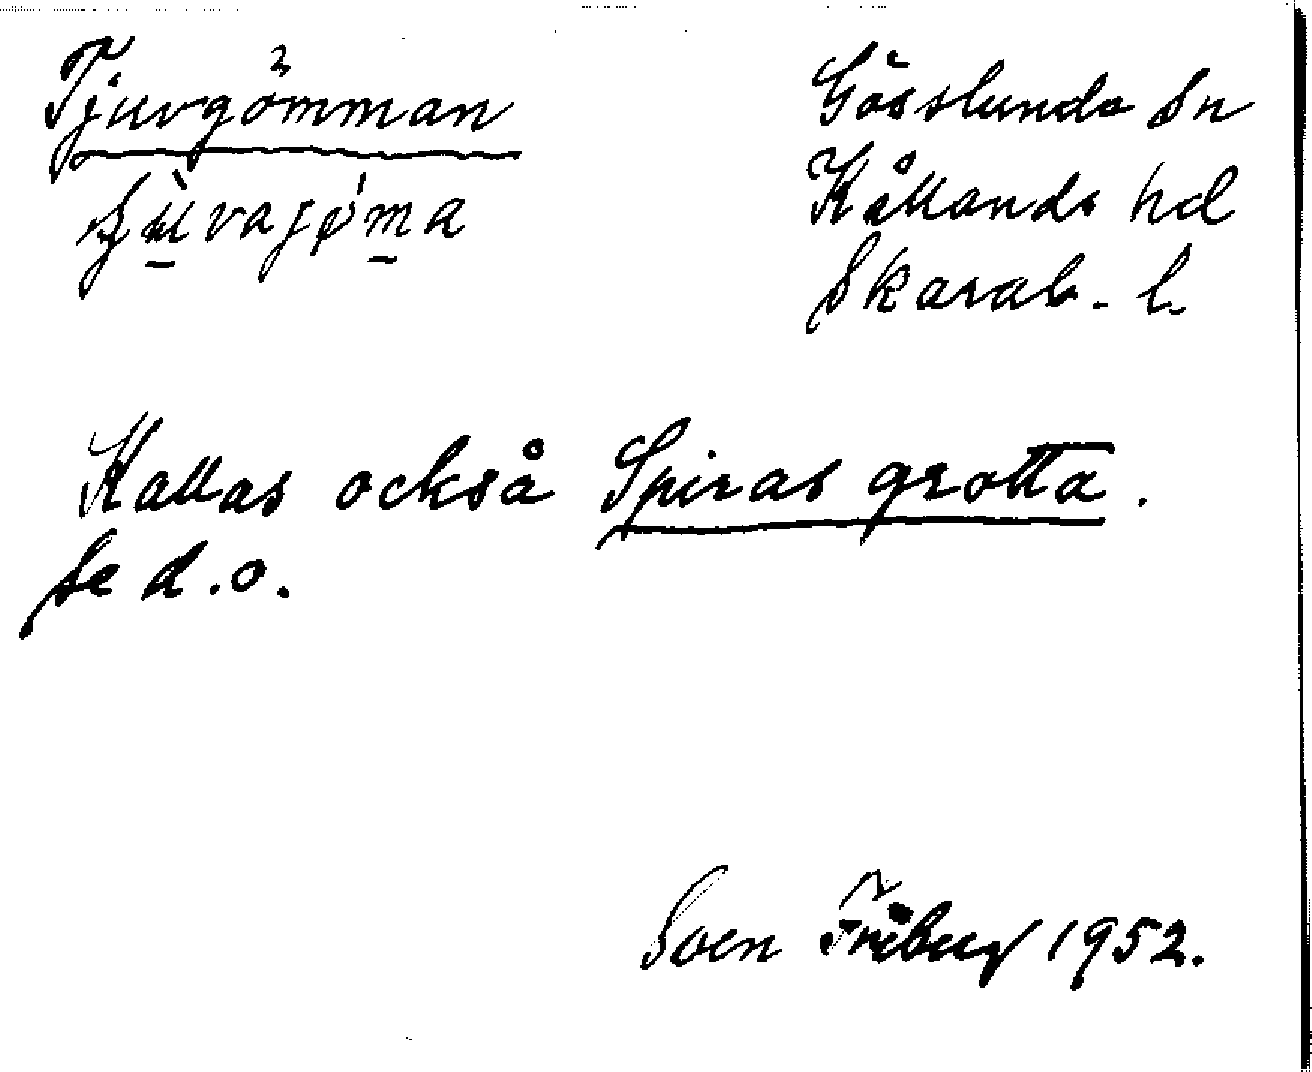 Tjuvgömman
Gösslunda Sn
Kållands hd
Skarab. l.
Kallas också Spiras grotta.
Se d.o.
Sven Friberg 1952.